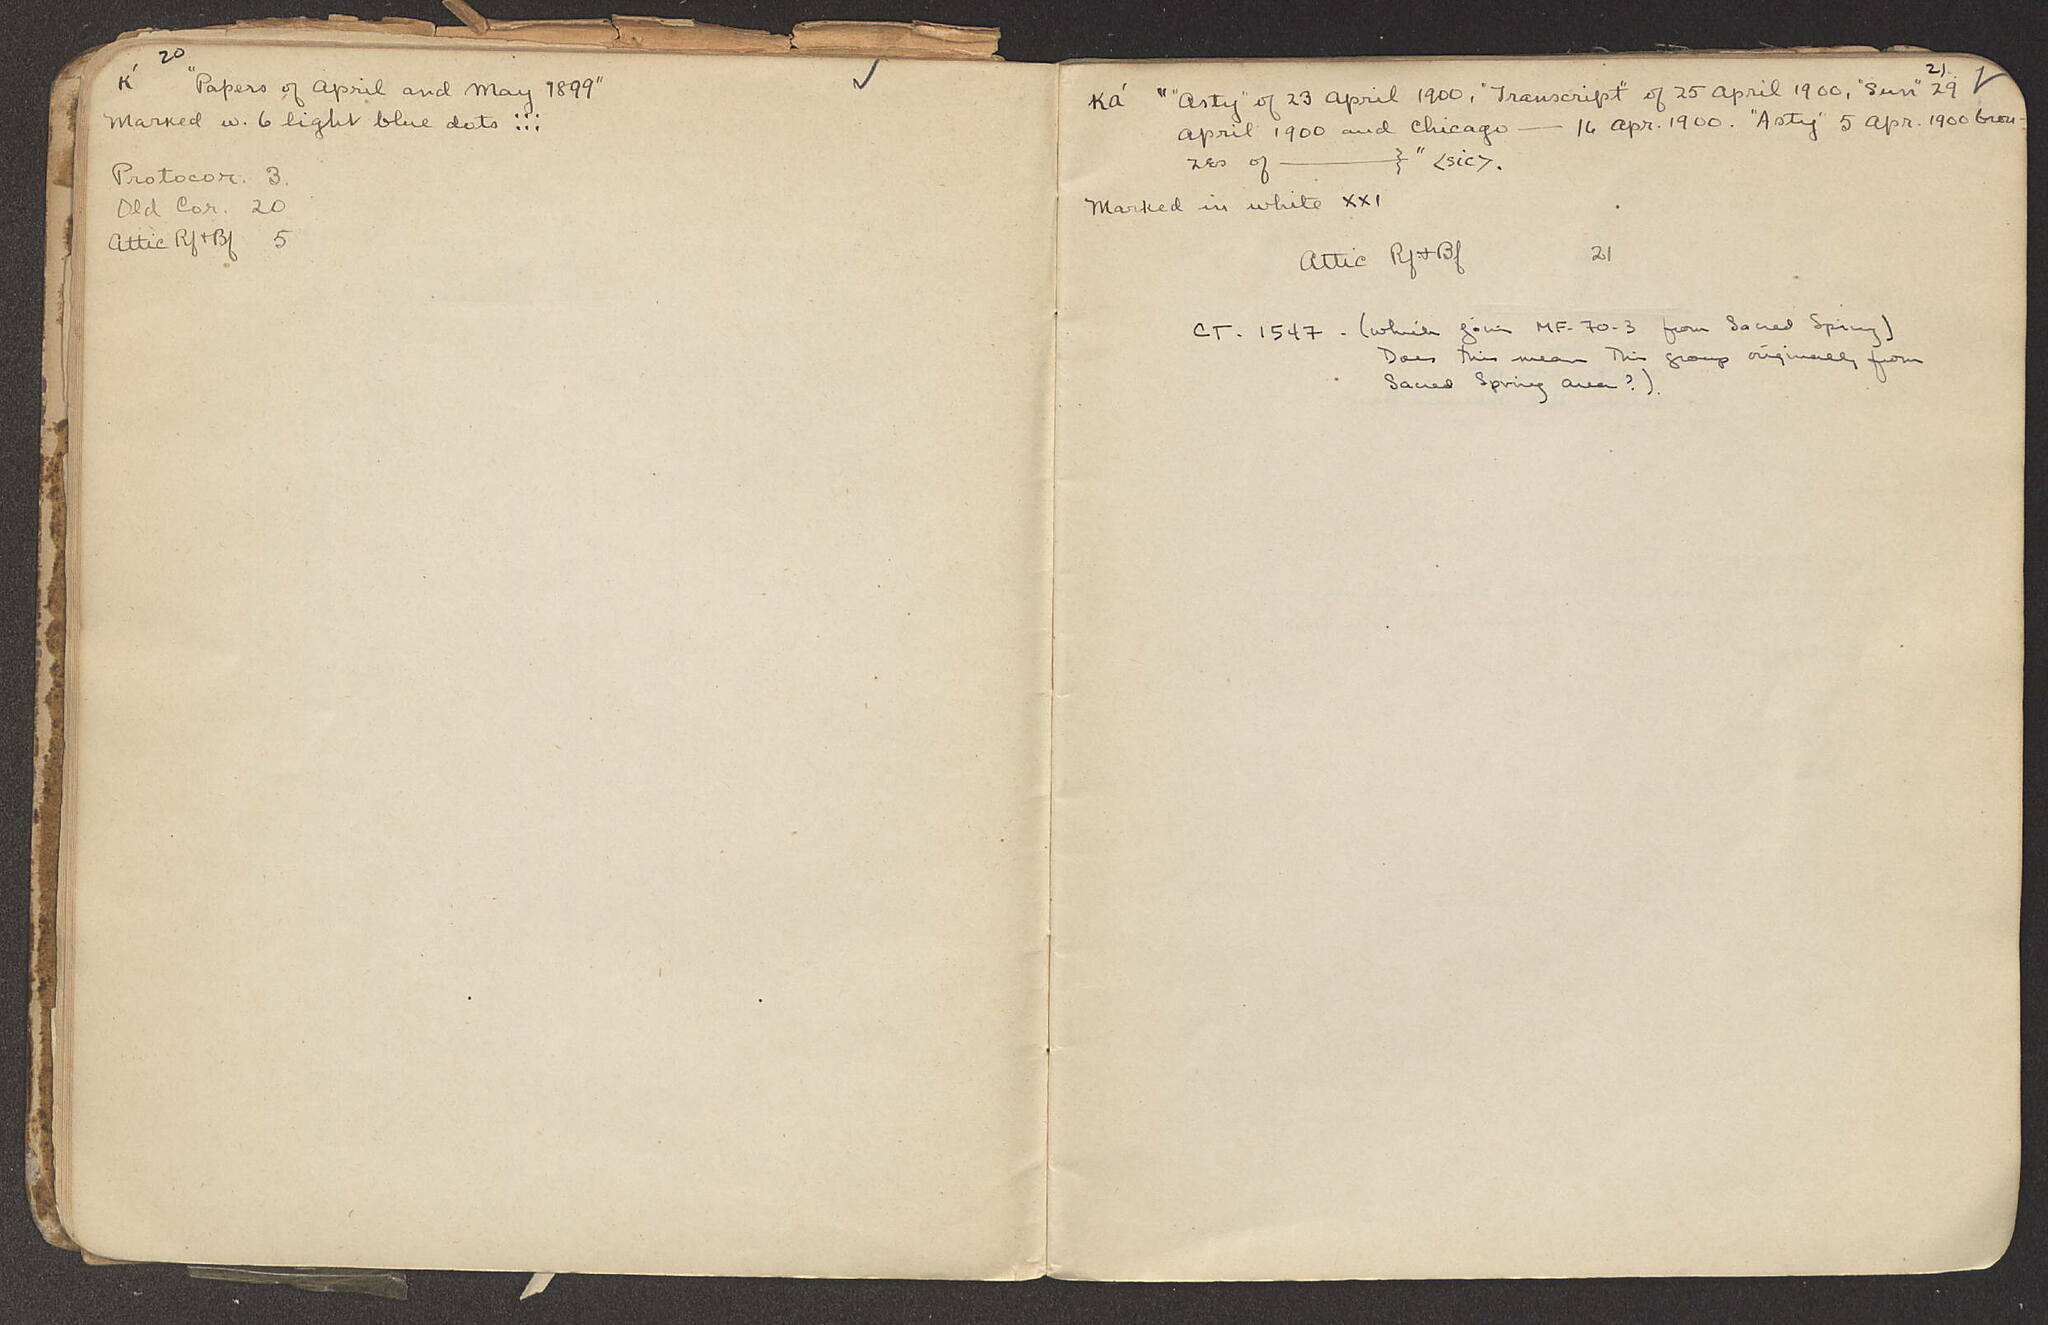 20
Κ´ "Papers of April and May 1899" ✓
Marked w. 6 light blue dots :::
Protocor. 3.
Old Cor. 20
Attic Rf+Bf 5
21. ✓
ΚΑ´ ""Asty" of 23 April 1900, "Transcript" of 25 April 1900, "Sun" 29
April 1900 and Chicago — 16 Apr. 1900. "Asty" 5 Apr. 1900 bron-
zes of ———}" <sic>.
Marked in white XXI
Attic Rf+Bf 21
CT. 1547 - (which join MF-70-3 from Sacred Spring)
Does this mean this group originally from
Sacred Spring area?).